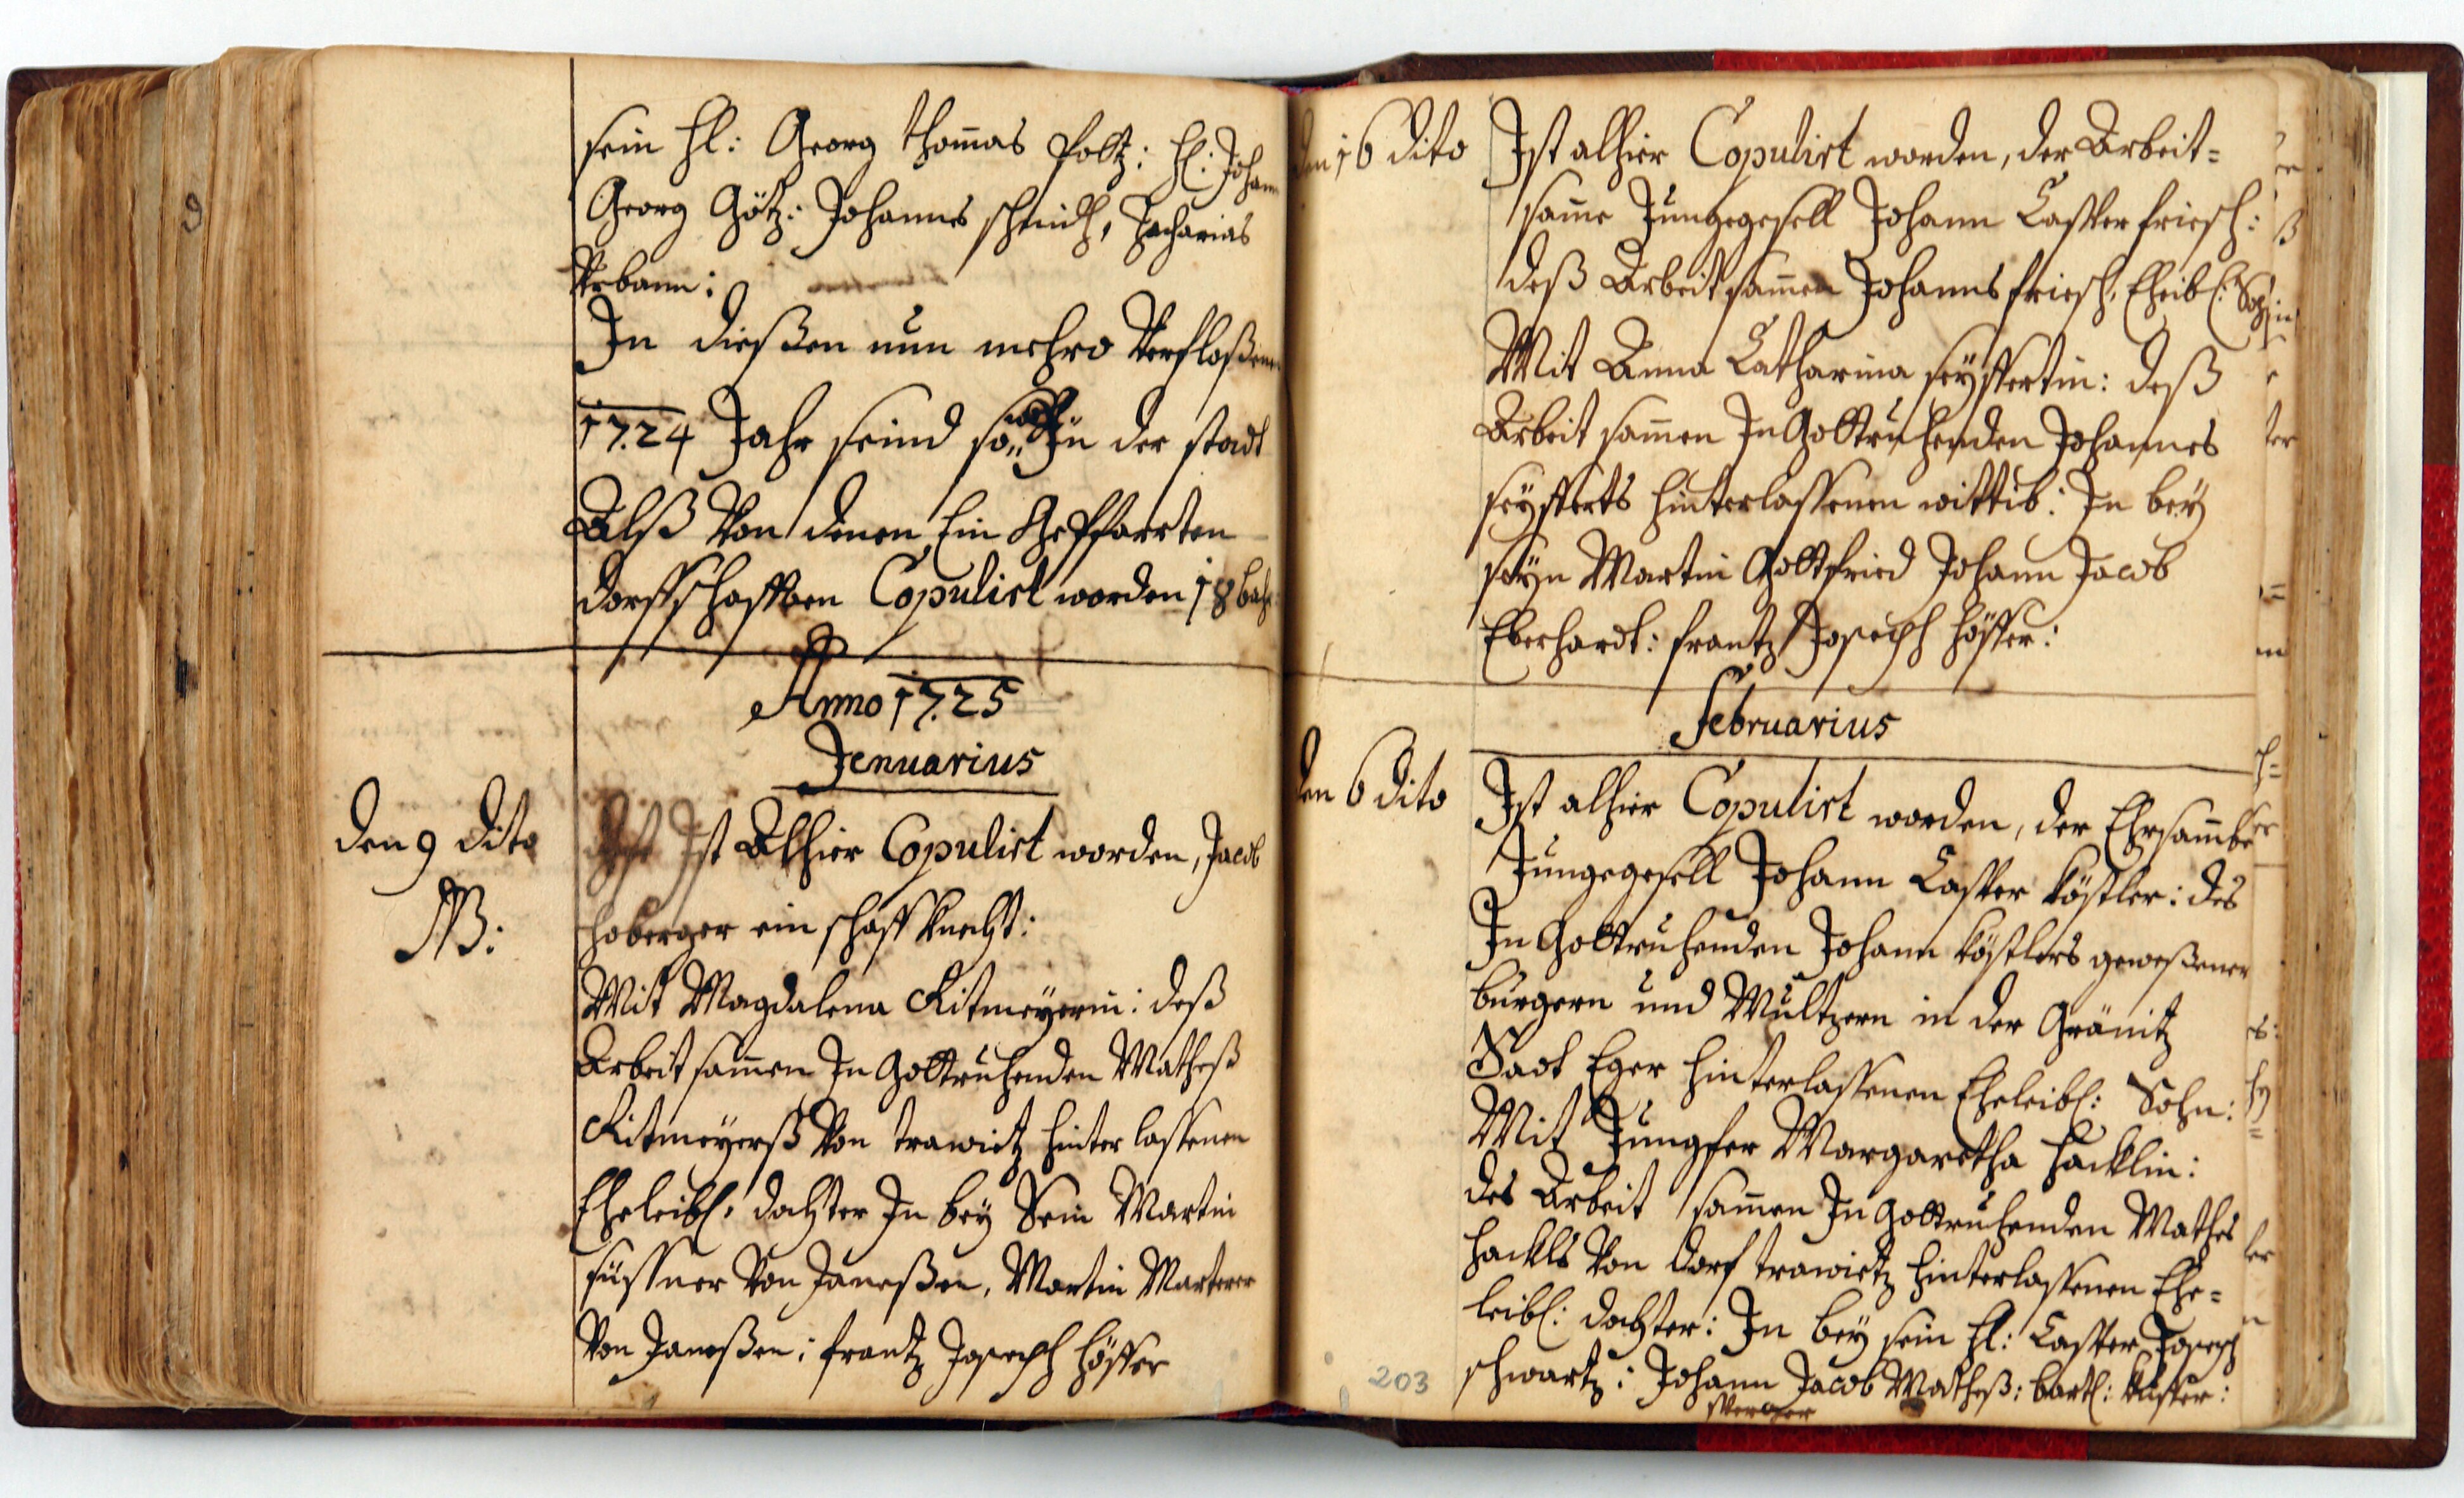 sein Hl: Georg Thom̄as Poltz: Hl: Johann
Georg Götz: Johannes Zacharias
Urbann:
In dießen nun mehro Verfloßenen
1724 Jahr seind so wohl In der stadt
Alß Von denen Ein Gepfarrten
dorffschafften Copulirt worden 18 bahr
Anno 1725
Jenuarius
den 9 dito
NB:
Ist Alhier Copulirt worden, Jacob
Hoberger ein schaff Knecht:
Mit Magdalena Ritmeÿerin: deß
Arbeitsam̄en In Gottruhenden Matheß
Ritmeÿerß Von trawitz hinter lassenen
Eheleibl: dochter In beÿ Sein Martin
süssner Von Janeßen, Martin Marterer
Von Janeßen: frantz Joseph Höffer
den 16 dito
Ist alhier Copulirt worden, der Arbeit=
sam̄e Jungegesell Johann Casper friesch:
deß Arbeitsam̄en Johannes friesch, Eheleibl: Sohn
Mit Anna Catharina seÿffertin: deß
Arbeit sam̄en In Gottruhenden Johannes
seÿfferts hinterlassenen wittib: In beÿ
seÿn Martin Gottfried Johann Jacob
Eberhardt: frantz Joseph Höffer:
Februarius
den 6 dito
Ist alhier Copulirt worden, der Ehrsam̄be
Jungegesell Johann Casper Köstler: des
In Gottruhenden Johann Köstlers geweßener
burgern und Multzern in der Gränitz
Stadt Eger hinterlassenen Eheleibl: Sohn:
Mit Jungfer Margaretha Hacklin:
des Arbeit sam̄en In Gottruhenden Mathes
Hackls Von dorf trawietz hinterlassenen Ehe=
leibl: dochter: In beÿ sein Hl: Casper Joseph
schwartz: Johann Jacob Matheß: bartl:
203